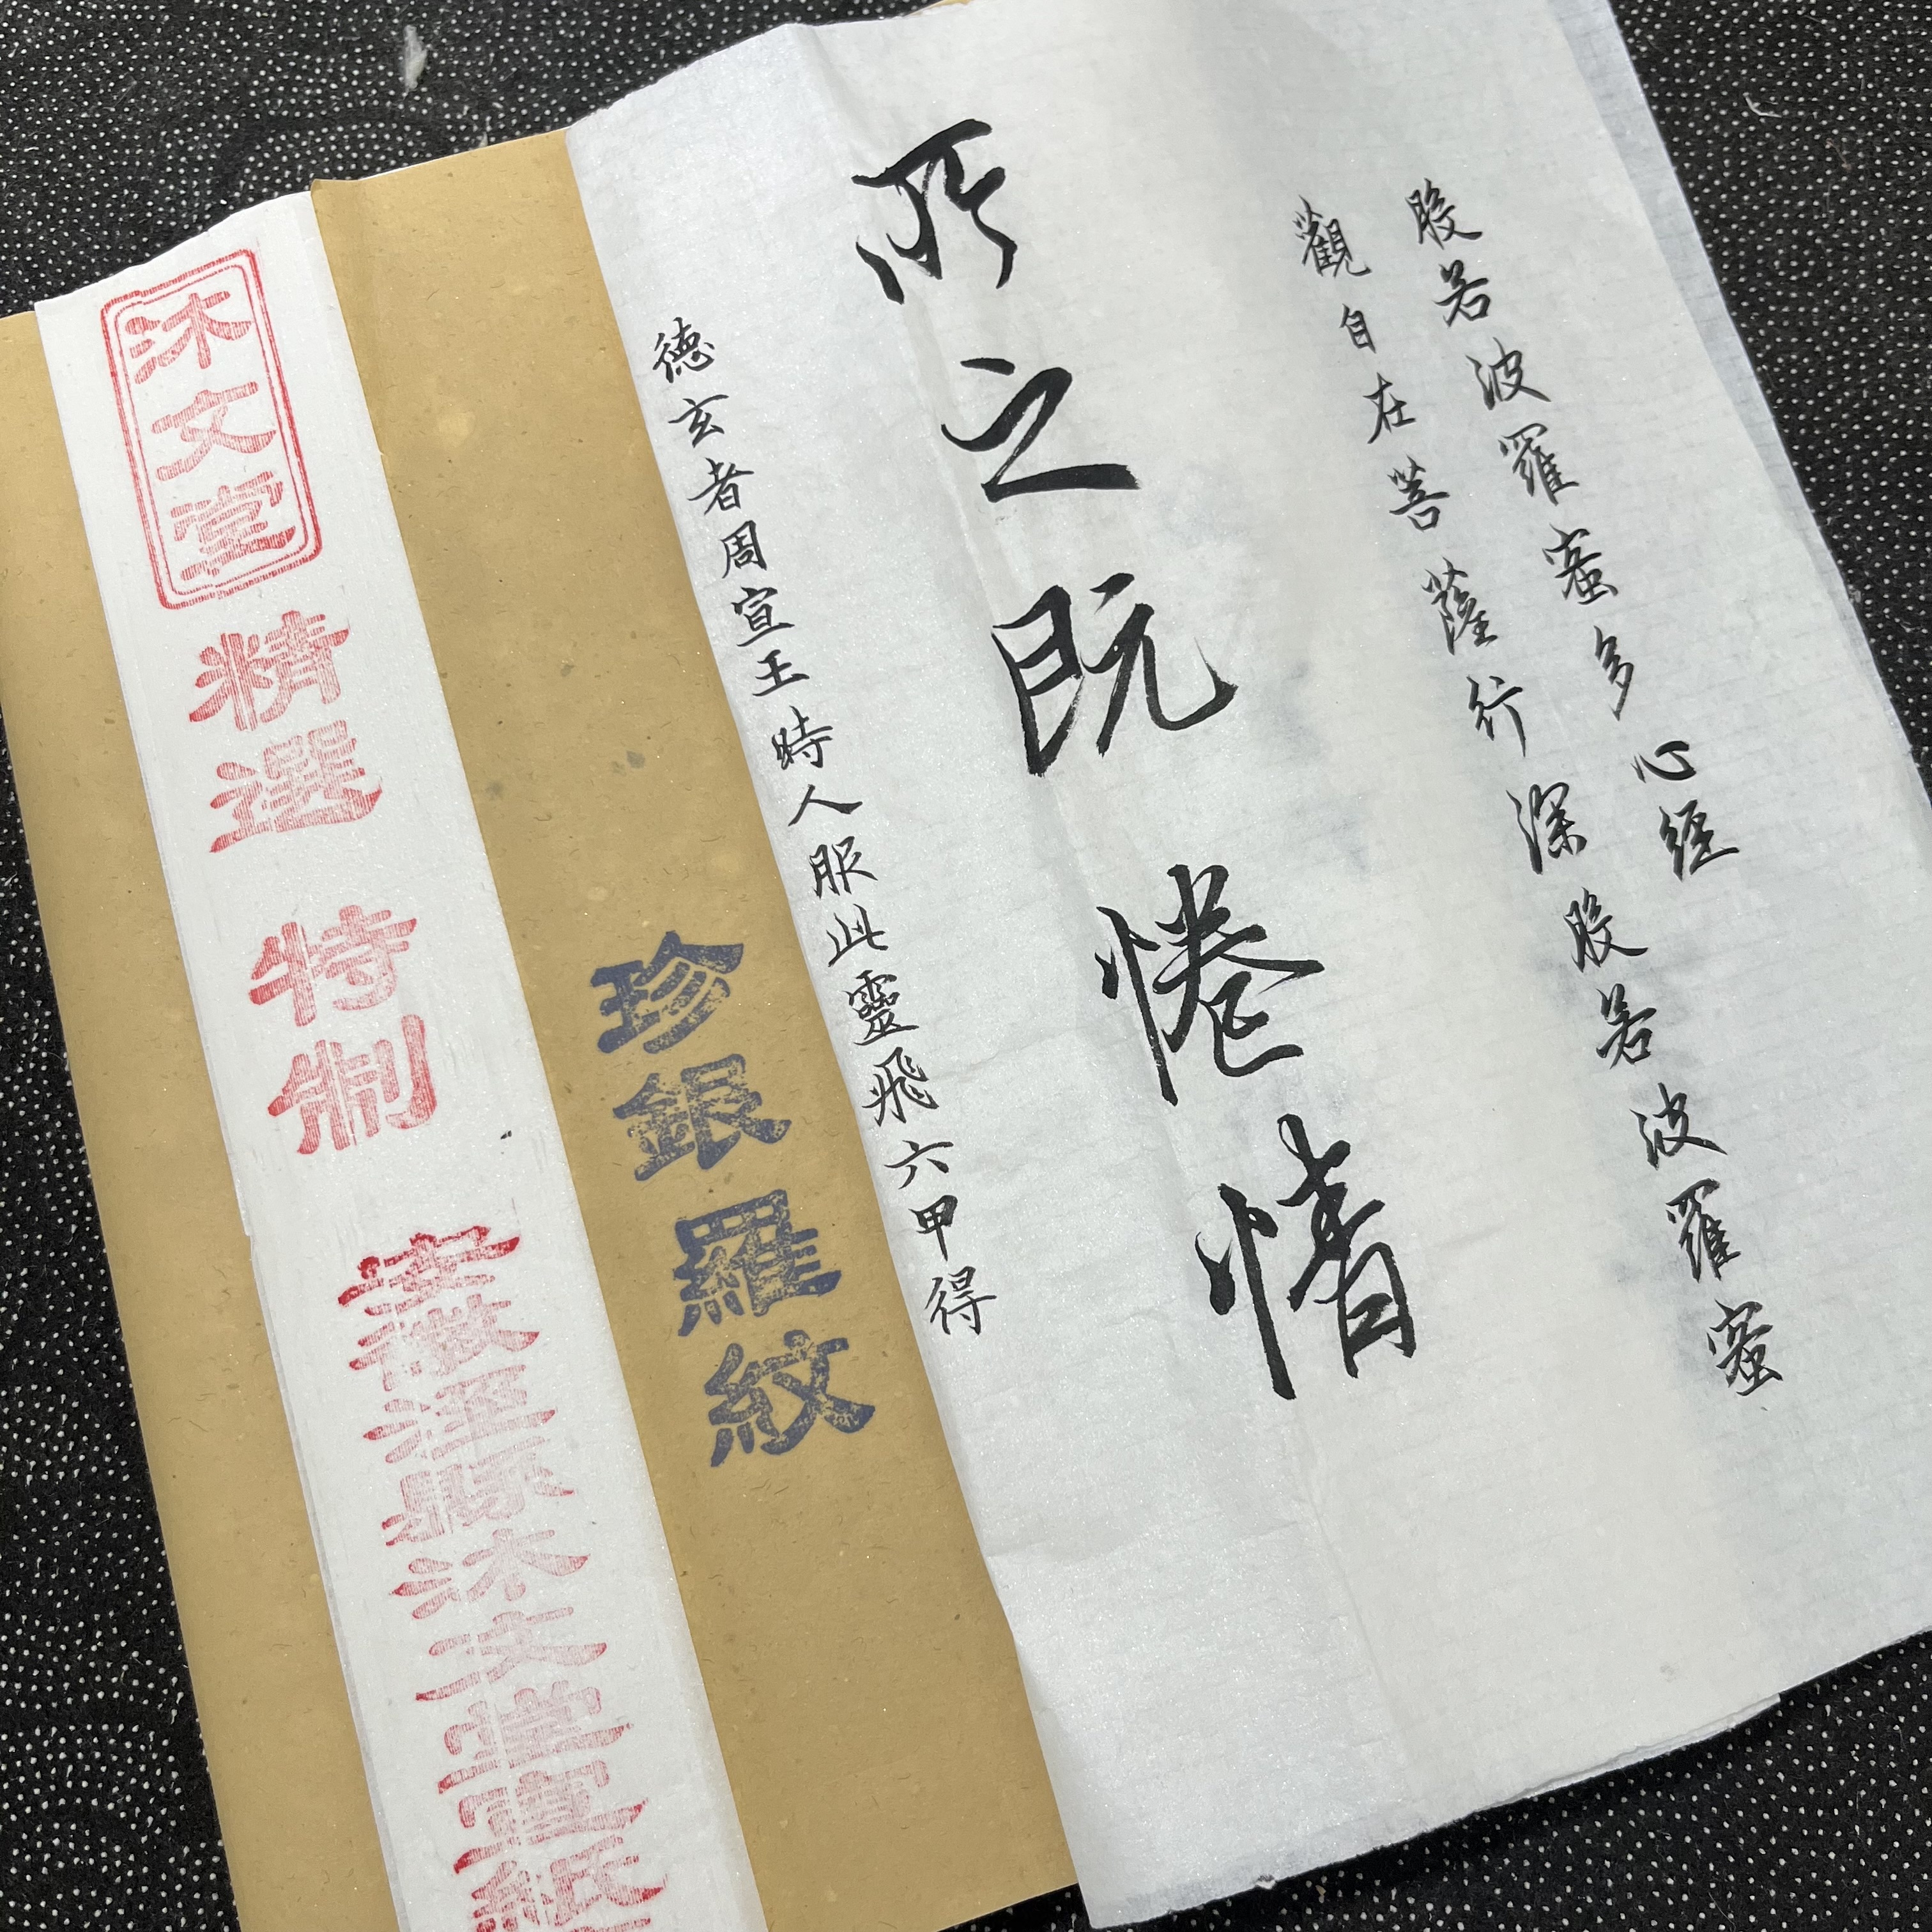 般若波羅蜜多心經
觀自在菩薩行深般若波羅蜜
所之既惓情
德玄者周宣王時人服此靈飛六甲得
珍銀羅紋
沐文堂 精選 特制 安徽涇縣沐文堂宣紙